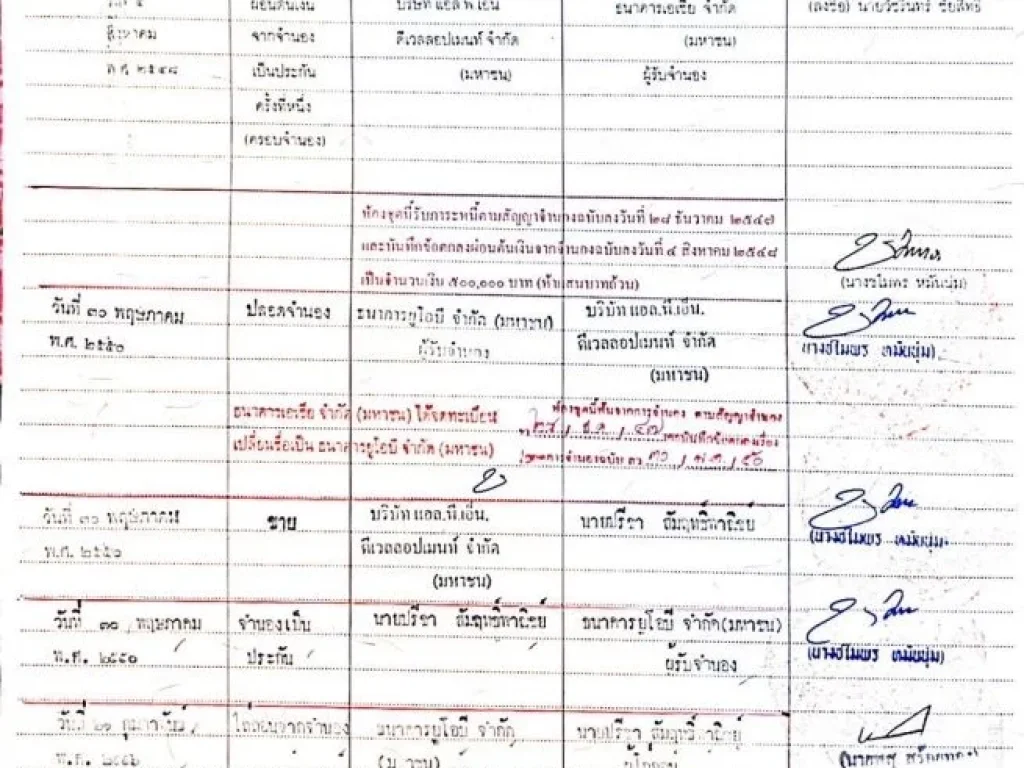 ผ่อนต้นเงิน บริษัท แอล พี เอ็น ธนาคารเอเซีย จำกัด (ลงชื่อ) นายวัชรินทร์ ชัยสิทธิ์
สิงหาคม จากจำนอง ดีเวลลอปเมนท์ จำกัด (มหาชน)
พ.ศ. ๒๕๔๘ เป็นประกัน (มหาชน) ผู้รับจำนอง
ครั้งที่หนึ่ง
(ครอบจำนอง)
ห้องชุดนี้รับภาระหนี้ตามสัญญาจำนองฉบับลงวันที่ ๒๘ ธันวาคม ๒๕๔๗
และบันทึกข้อตกลงผ่อนต้นเงินจากจำนองฉบับลงวันที่ ๔ สิงหาคม ๒๕๔๘
เป็นจำนวนเงิน ๕๐๐,๐๐๐ บาท (ห้าแสนบาทถ้วน)
วันที่ ๓๐ พฤษภาคม ปลอดจำนอง ธนาคารยูโอบี จำกัด (มหาชน) บริษัท แอล.พี.เอ็น.
พ.ศ. ๒๕๕๐ ผู้รับจำนอง ดีเวลลอปเมนท์ จำกัด
(มหาชน)
ธนาคารเอเซีย จำกัด (มหาชน) ได้จดทะเบียน ห้องชุดนี้พ้นจากการจำนอง ตามสัญญาจำนอง
เปลี่ยนชื่อเป็น ธนาคารยูโอบี จำกัด (มหาชน)
วันที่ ๓๐ พฤษภาคม ขาย บริษัท แอล.พี.เอ็น. นายปรีชา
พ.ศ. ๒๕๕๐ ดีเวลลอปเมนท์ จำกัด
(มหาชน)
วันที่ ๓๐ พฤษภาคม จำนองเป็น นายปรีชา ธนาคารยูโอบี จำกัด(มหาชน)
พ.ศ. ๒๕๕๐ ประกัน ผู้รับจำนอง
วันที่ ๒๑ กุมภาพันธ์ ไถ่ถอนจากจำนอง ธนาคารยูโอบี จำกัด นายปรีชา